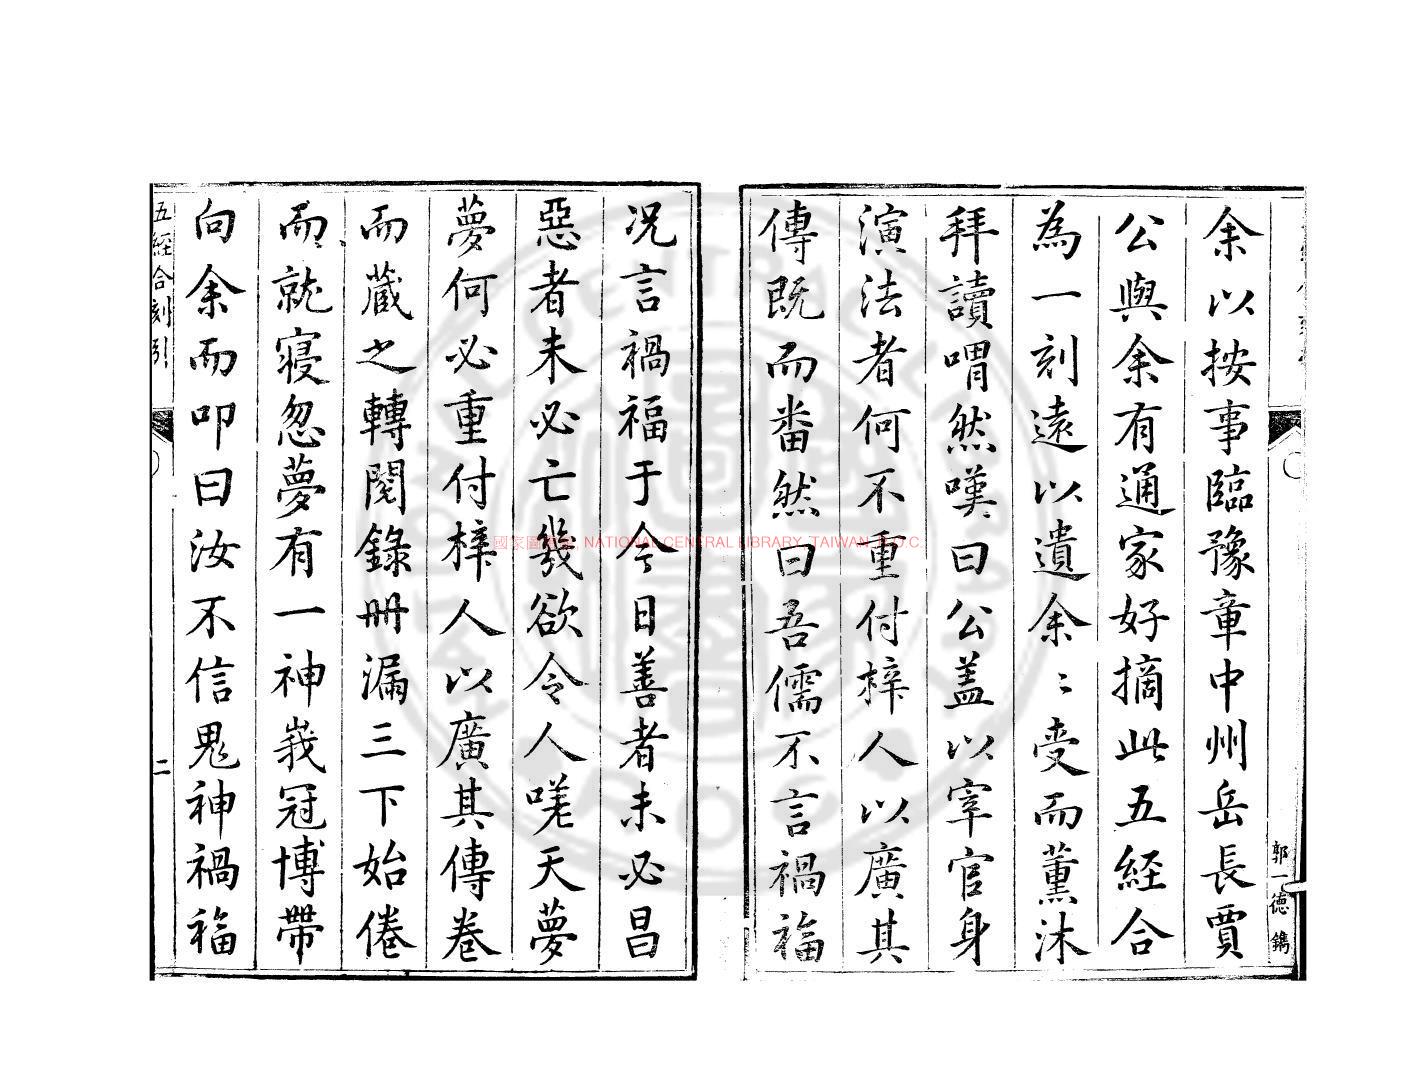 余以按事臨豫章中州岳長賈
公與余有通家好摘此五經合
為一刻遠以遺余〻受而薰沐
拜讀喟然嘆曰公蓋以宰官身
演法者何不重付梓人以廣其
傳既而畨然曰吾儒不言禍福
郭一德鐫
况言禍福于今日善者未必昌
惡者未必亡幾欲令人嘆天夢
夢何必重付梓人以廣其傳卷
而藏之轉閱錄冊漏三下始倦
而就寢忽夢有一神峩冠博帶
向余而叩曰汝不信鬼神禍福
五經合刻引
二
國家圖書館, NATIONAL CENTRAL LIBRARY, TAIWAN, R.O.C.